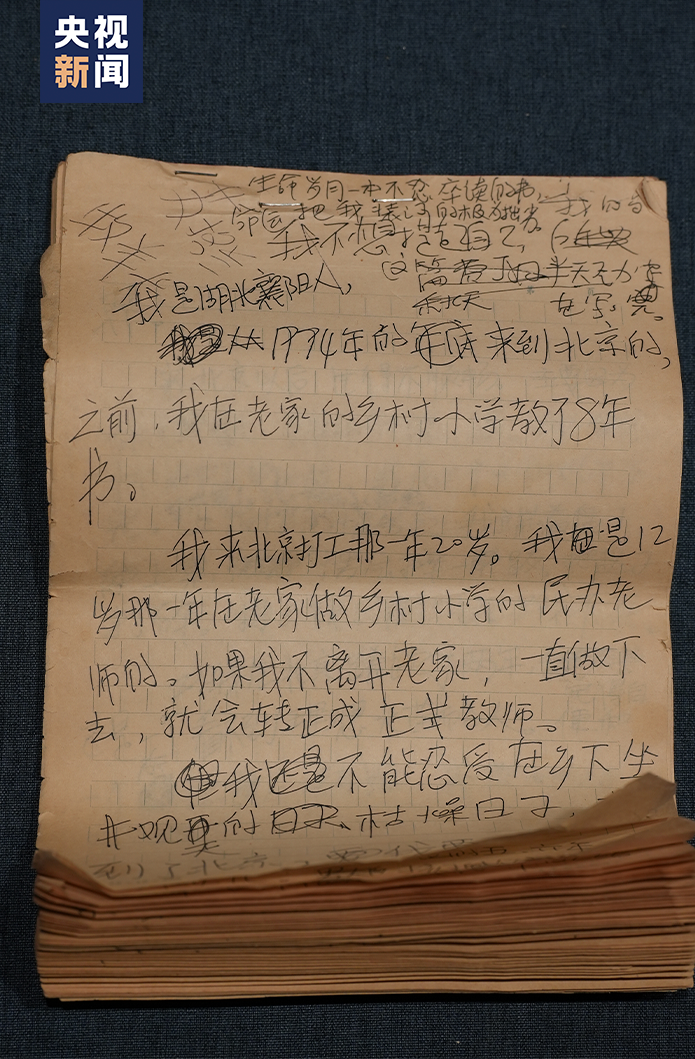 央视
新闻
生命岁月一本不忍卒读的书，
命运把我装订的极为拙劣
我不想
我是湖北襄阳人，
在写
1994年的年底来到北京的，
之前，我在老家的乡村小学教了8年
书。
我来北京打工那一年20岁。我是12
岁那一年在老家做乡村小学的民办老
师的。如果我不离开老家，一直做下
去，就会转正成正式教师。
我还是不能忍受在乡下坐
井观天的枯燥日子，
到了北京